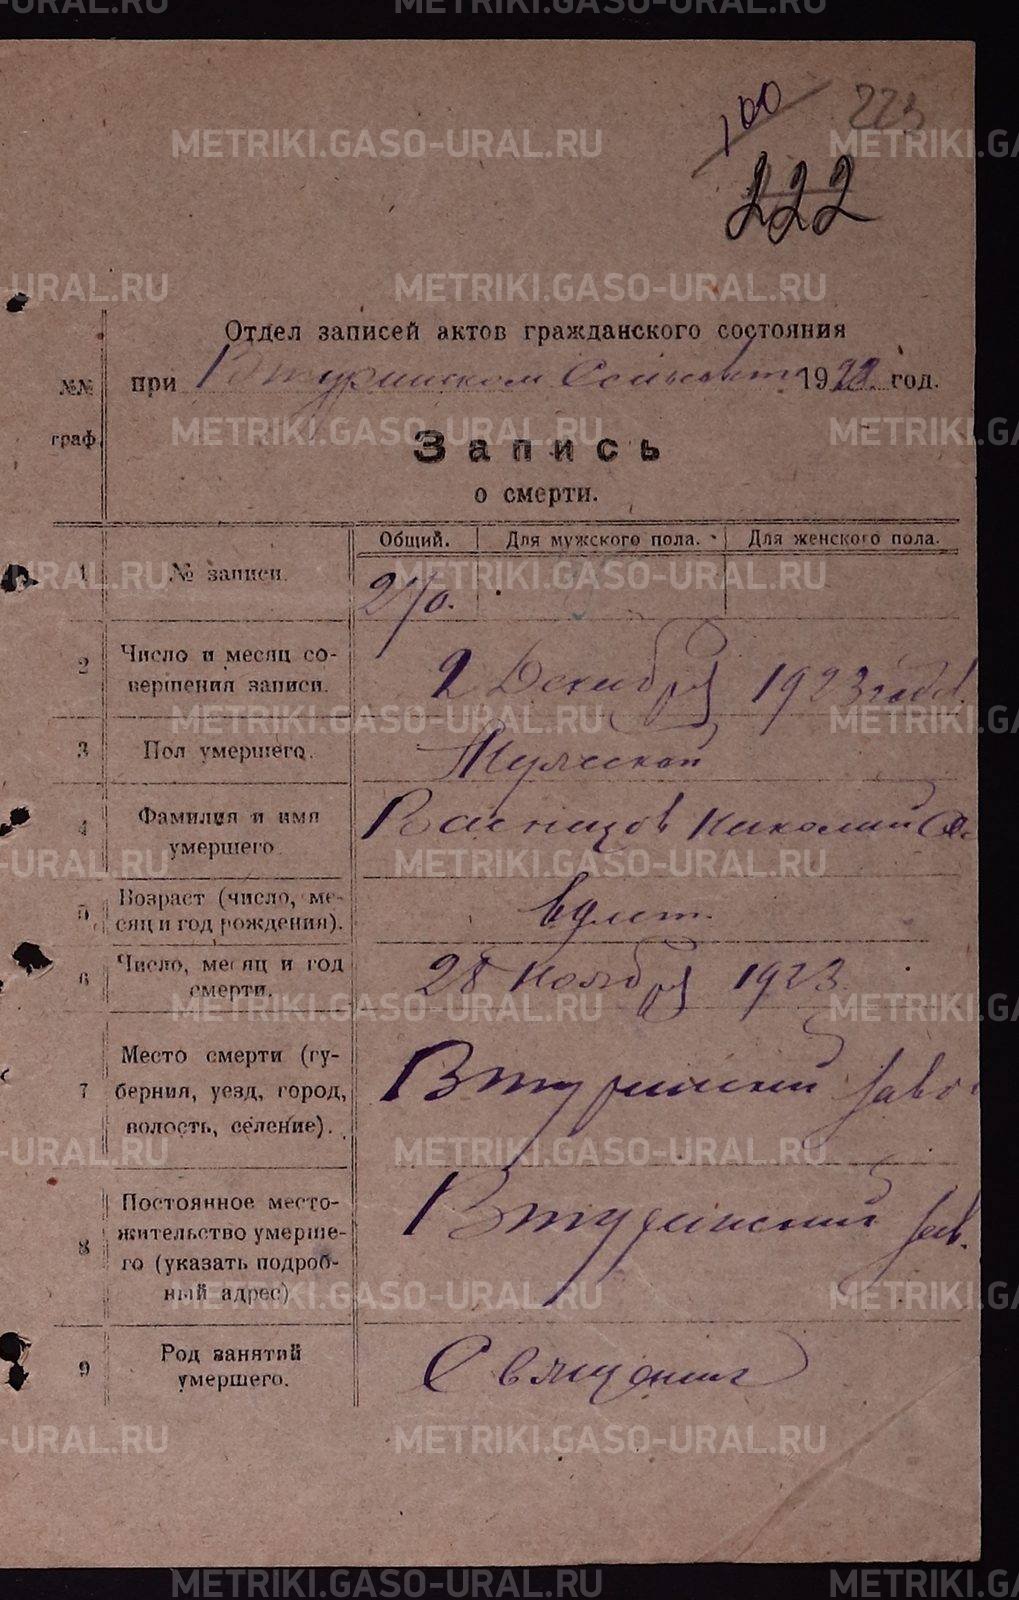 METRIKI.GASO-URAL.RU
100 223
222
Отдел записей актов гражданского состояния
при В Туринском Сельсовет 1923 год.
№№ граф.
Запись
о смерти.
Общий. Для мужского пола. Для женского пола.
1 № записи. 270.
2 Число и месяц со-
вершения записи. 2 Декабря 1923 года
3 Пол умершего. Мужской
4 Фамилия и имя
умершего Васнецов Николай
5 Возраст (число, ме-
сяц и год рождения). лет.
6 Число, месяц и год
смерти. 28 Ноября 1923.
7 Место смерти (гу-
берния, уезд, город,
волость, селение). В Туринский заво
8 Постоянное место-
жительство умерше-
го (указать подроб-
ный адрес) В Туринский зав.
9 Род занятий
умершего. Священник